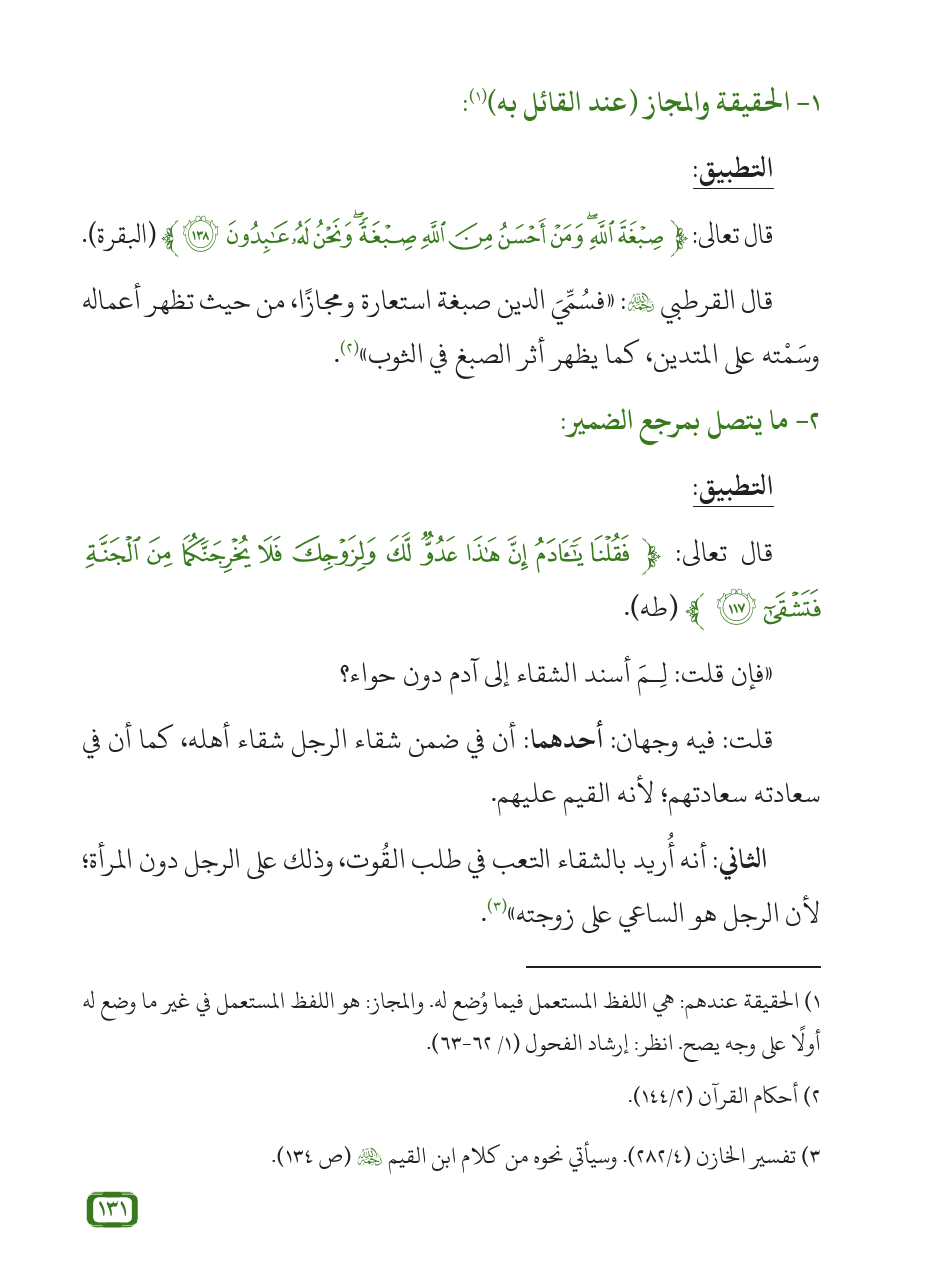 ١- الحقيقة والمجاز (عند القائل به)(١):
التطبيق:
قال تعالى: ﴿ صِبْغَةَ ٱللَّهِ ۖ وَمَنْ أَحْسَنُ مِنَ ٱللَّهِ صِبْغَةً ۖ وَنَحْنُ لَهُۥ عَـٰبِدُونَ ١٣٨ ﴾ (البقرة).
قال القرطبي ﵀: «فسُمِّيَ الدين صبغة استعارة ومجازًا، من حيث تظهر أعماله
وسَمْته على المتدين، كما يظهر أثر الصبغ في الثوب»(٢).
٢- ما يتصل بمرجع الضمير:
التطبيق:
قال تعالى: ﴿ فَقُلْنَا يَـٰٓـَٔادَمُ إِنَّ هَـٰذَا عَدُوٌّ لَّكَ وَلِزَوْجِكَ فَلَا يُخْرِجَنَّكُمَا مِنَ ٱلْجَنَّةِ
فَتَشْقَىٰٓ ١١٧ ﴾ (طه).
«فإن قلت: لِـمَ أسند الشقاء إلى آدم دون حواء؟
قلت: فيه وجهان: أحدهما: أن في ضمن شقاء الرجل شقاء أهله، كما أن في
سعادته سعادتهم؛ لأنه القيم عليهم.
الثاني: أنه أُريد بالشقاء التعب في طلب القُوت، وذلك على الرجل دون المرأة؛
لأن الرجل هو الساعي على زوجته»(٣).
١) الحقيقة عندهم: هي اللفظ المستعمل فيما وُضع له. والمجاز: هو اللفظ المستعمل في غير ما وضع له
أولًا على وجه يصح. انظر: إرشاد الفحول (١/ ٦٢-٦٣).
٢) أحكام القرآن (١٤٤/٢).
٣) تفسير الخازن (٢٨٢/٤). وسيأتي نحوه من كلام ابن القيم ﵀ (ص ١٣٤).
١٣١